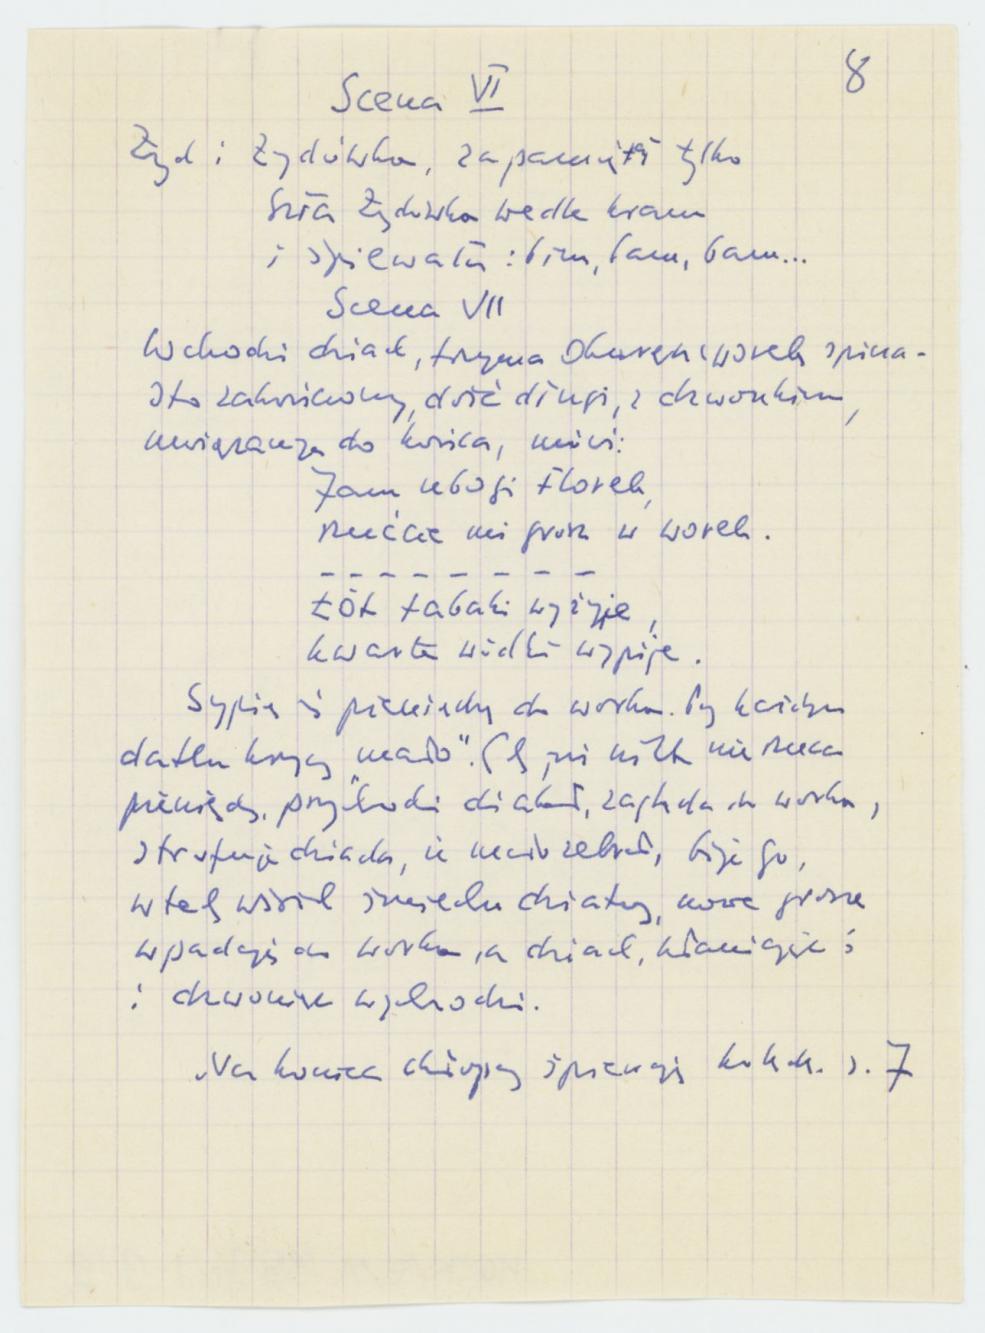 8
Scena VI
Żyd i Żydówka, zapamiętał tylko
Szła Żydówka wedle kramu
i śpiewała: bim, bam, bam...
Scena VII
Wchodzi dziad, trzyma worek spicza-
sto zakończony, dość długi, z dzwonkiem,
uwiązanym do końca, mówi:
Jam ubogi człorek,
rzućcie mi grosz w worek.
- - - - - - - - -
łót tabaki wyżyje,
kwartę wódki wypije.
Sypią się pieniądze do worka. Przy każdym
datku krzyczy „mało”. Gdy już nikt nie rzuca
pieniędzy, przychodzi diabeł, zagląda do worka,
strofuje dziada, że mało zebrał, bije go,
wtedy wśród śmiechu dziatwy, nowe grosze
wpadają do worka, a dziad, kłaniając się
i dzwoniąc wychodzi.
Na końcu chłopcy śpiewają s. 7